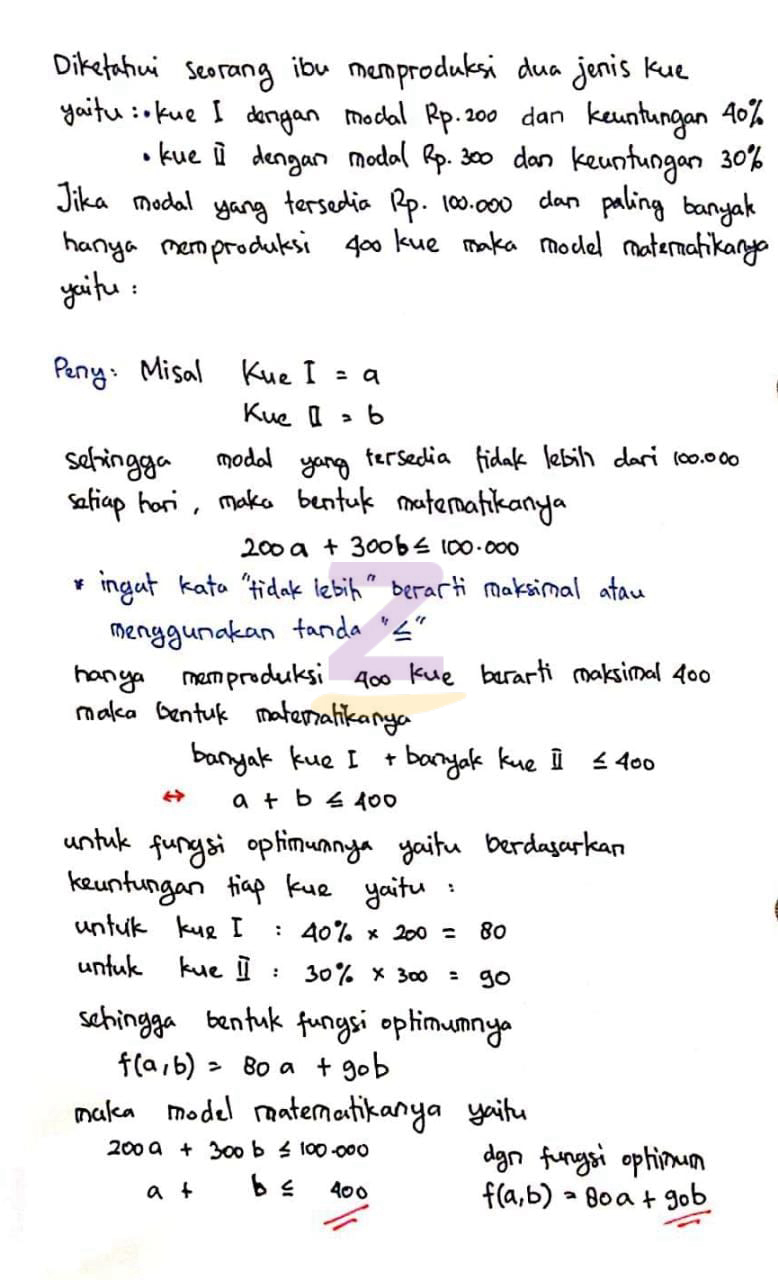 Diketahui seorang ibu memproduksi dua jenis kue
yaitu : • kue I dengan modal Rp. 200 dan keuntungan 40%
• kue II dengan modal Rp. 300 dan keuntungan 30%
Jika modal yang tersedia Rp. 100.000 dan paling banyak
hanya memproduksi 400 kue maka model matematikanya
yaitu :
Peny : Misal Kue I = a
Kue II = b
sehingga modal yang tersedia tidak lebih dari 100.000
setiap hari , maka bentuk matematikanya
200 a + 300 b ≤ 100.000
* ingat kata "tidak lebih" berarti maksimal atau
menggunakan tanda "≤"
hanya memproduksi 400 kue berarti maksimal 400
maka bentuk matematikanya
banyak kue I + banyak kue II ≤ 400
↔ a + b ≤ 400
untuk fungsi optimumnya yaitu berdasarkan
keuntungan tiap kue yaitu :
untuk kue I : 40% × 200 = 80
untuk kue II : 30% × 300 = 90
sehingga bentuk fungsi optimumnya
f(a,b) = 80 a + 90b
maka model matematikanya yaitu
200 a + 300 b ≤ 100.000 dgn fungsi optimum
a + b ≤ 400 f(a,b) = 80a + 90b